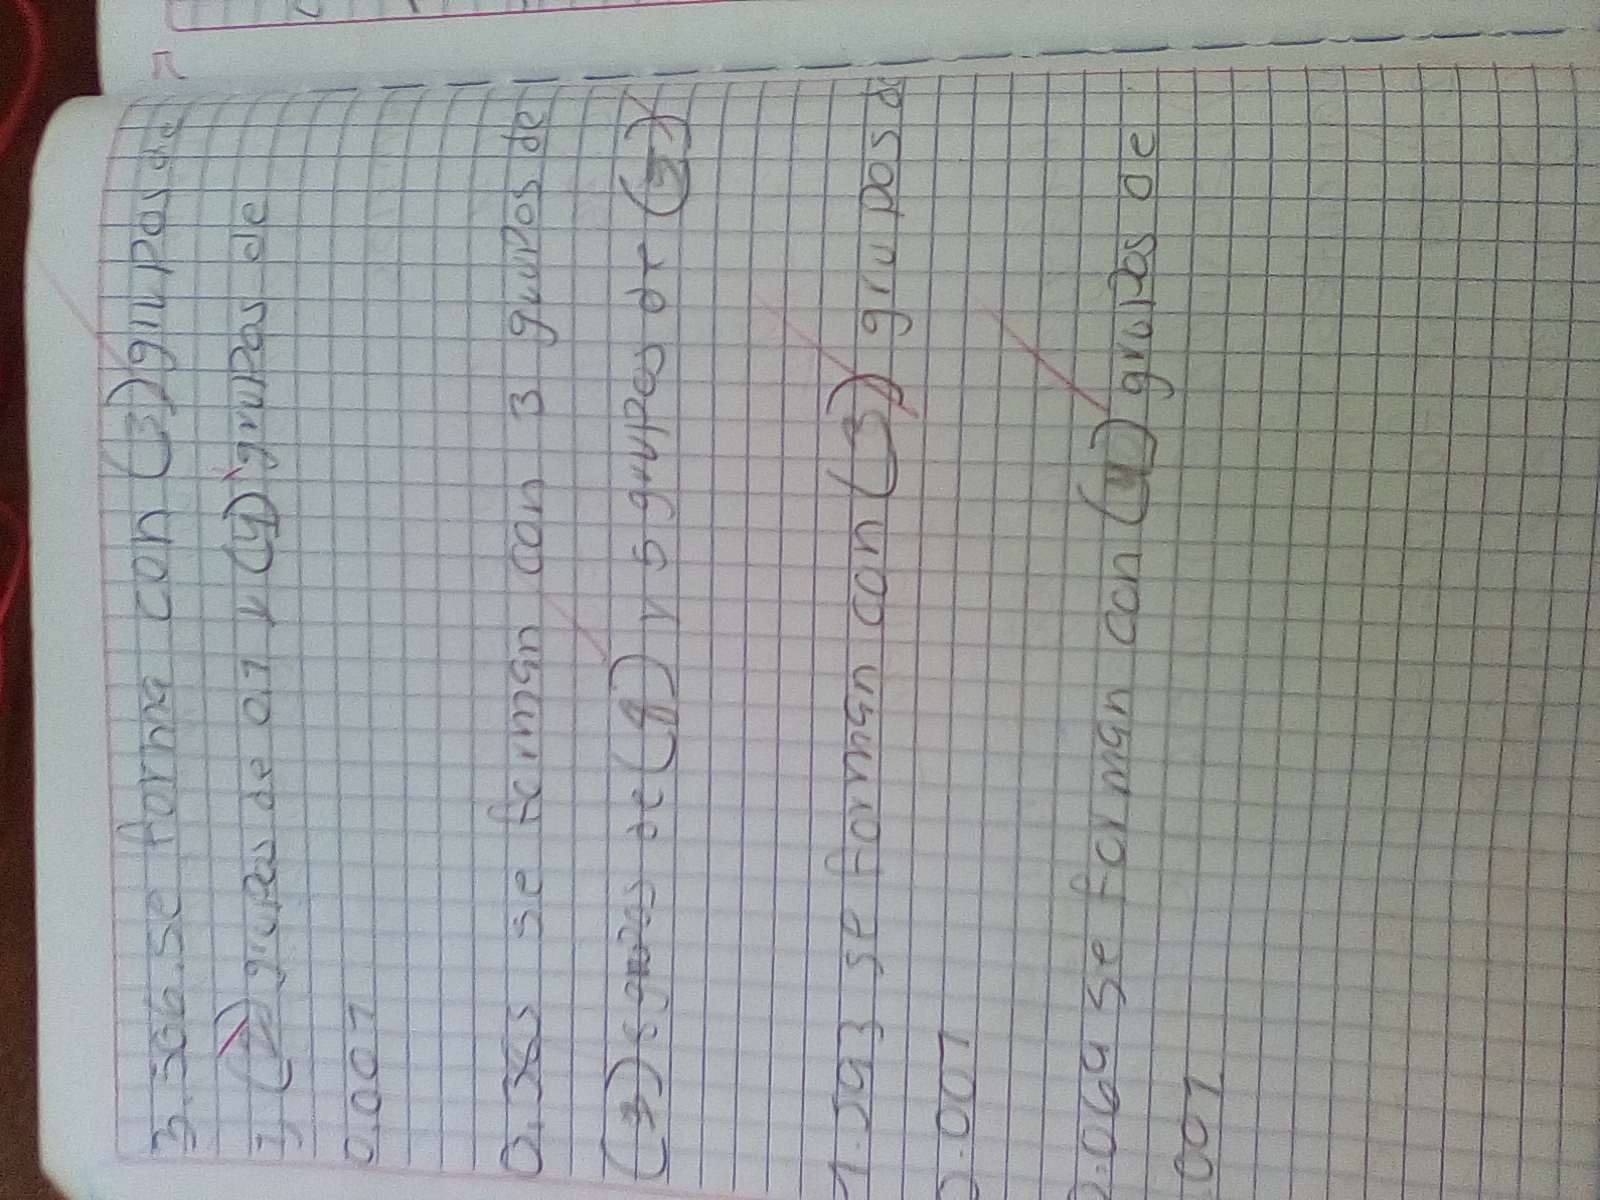 3.506.se forma con (3) grupos de
1, ( ) grupos de 0.1 y (4) grupos de
0.007
se forman con 3 grupos de
grupos de ( ) y 5 grupos de
1.593 se forman con (3) grupos d
0.007
.064 se forman con (4) grupos de
.001